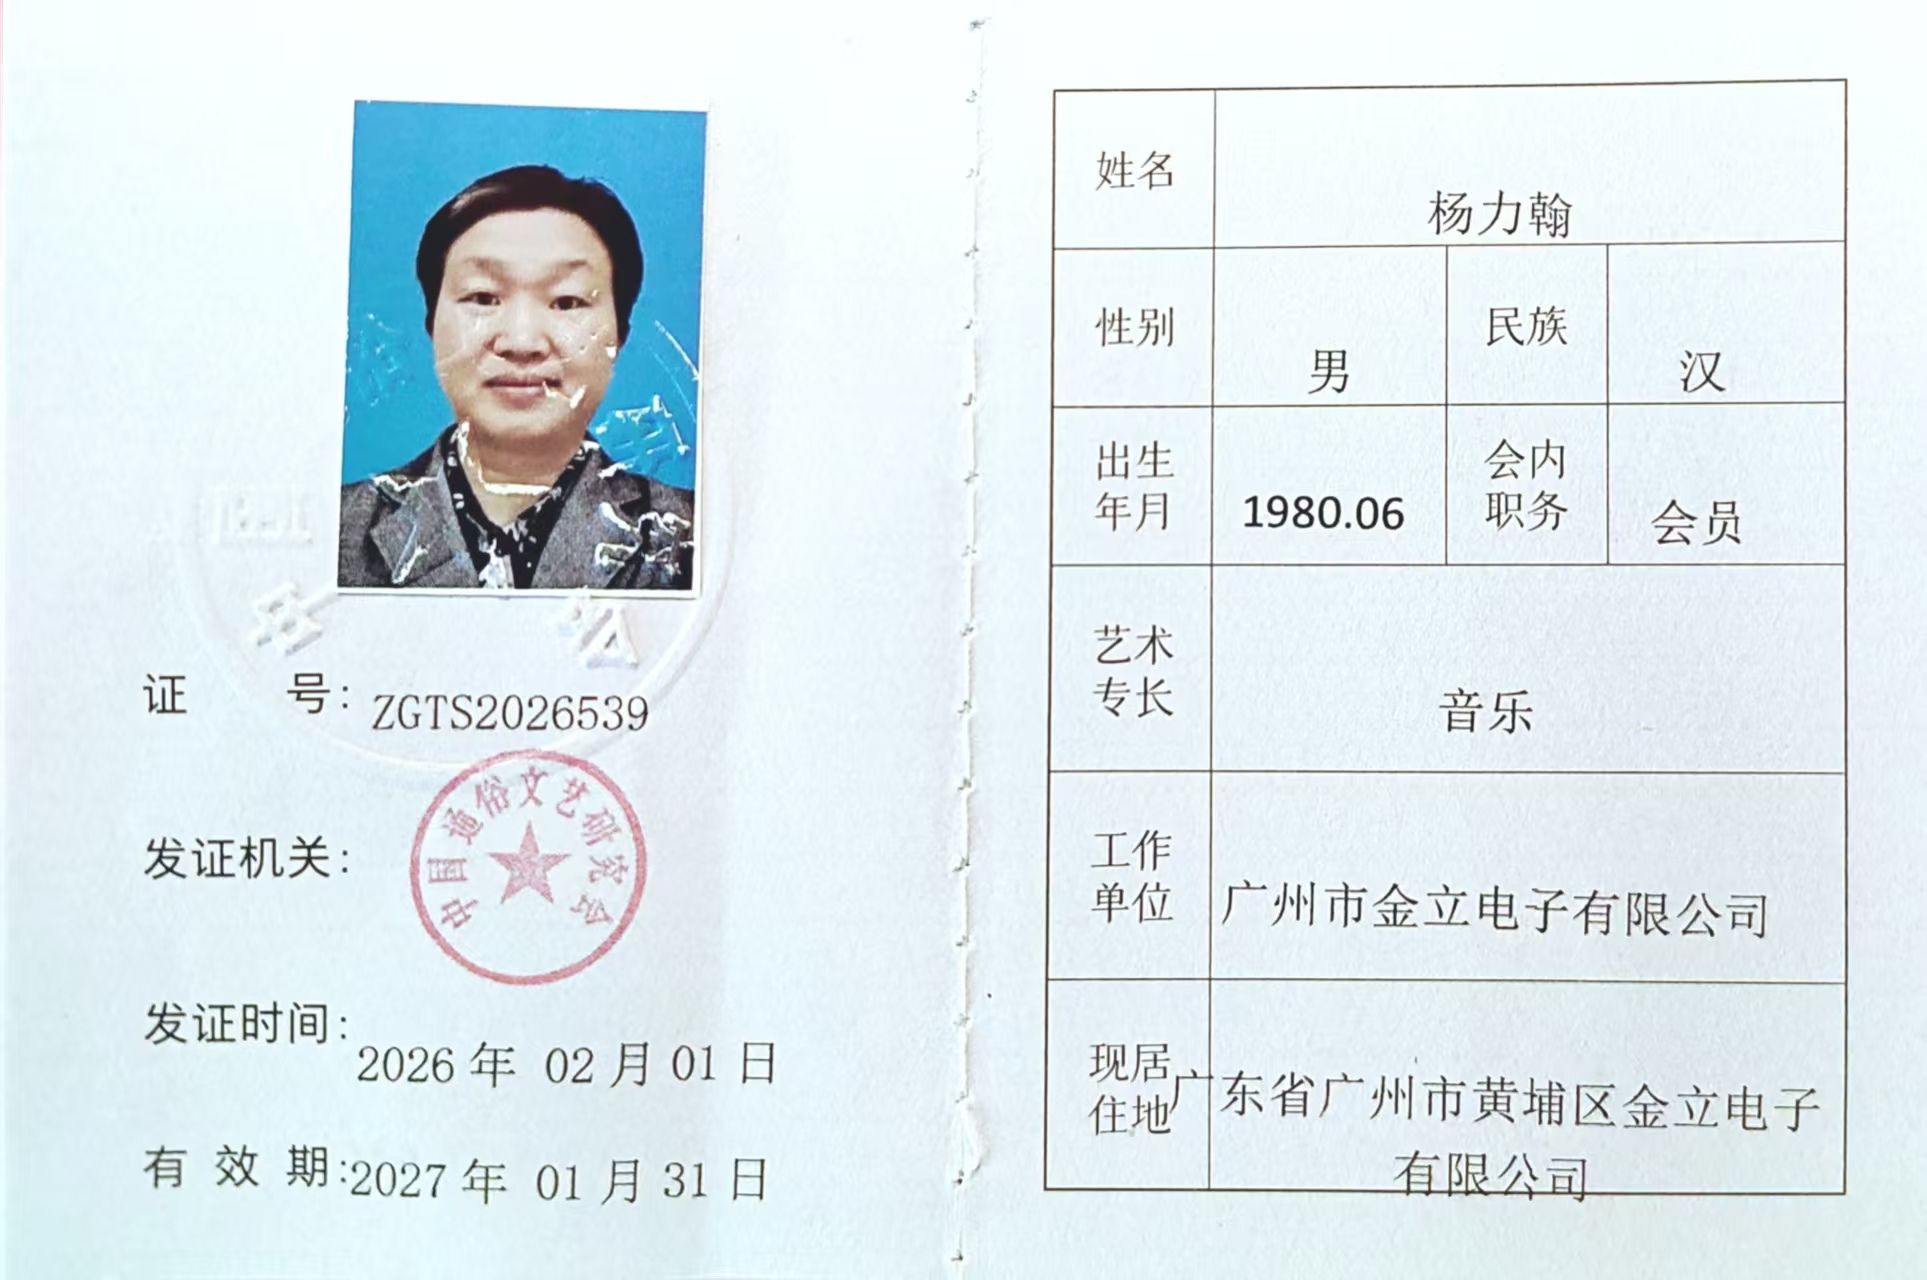 证 号: ZGTS2026539
发证机关:
中国通俗文艺研究会
发证时间:
2026 年 02 月 01 日
有 效 期:2027 年 01 月 31 日
姓名 杨力翰
性别 男 民族 汉
出生年月 1980.06 会内职务 会员
艺术专长 音乐
工作单位 广州市金立电子有限公司
现居住地 广东省广州市黄埔区金立电子
有限公司